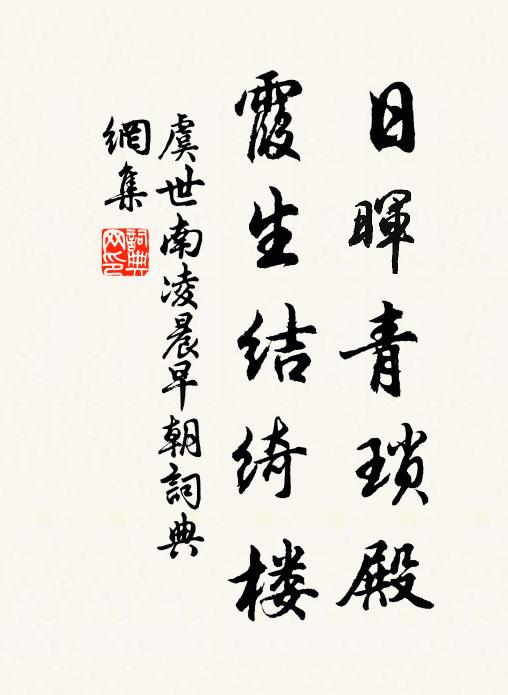 日暉青瑣殿
霞生結綺樓
虞世南凌晨早朝詞典
網集
詞典
网印